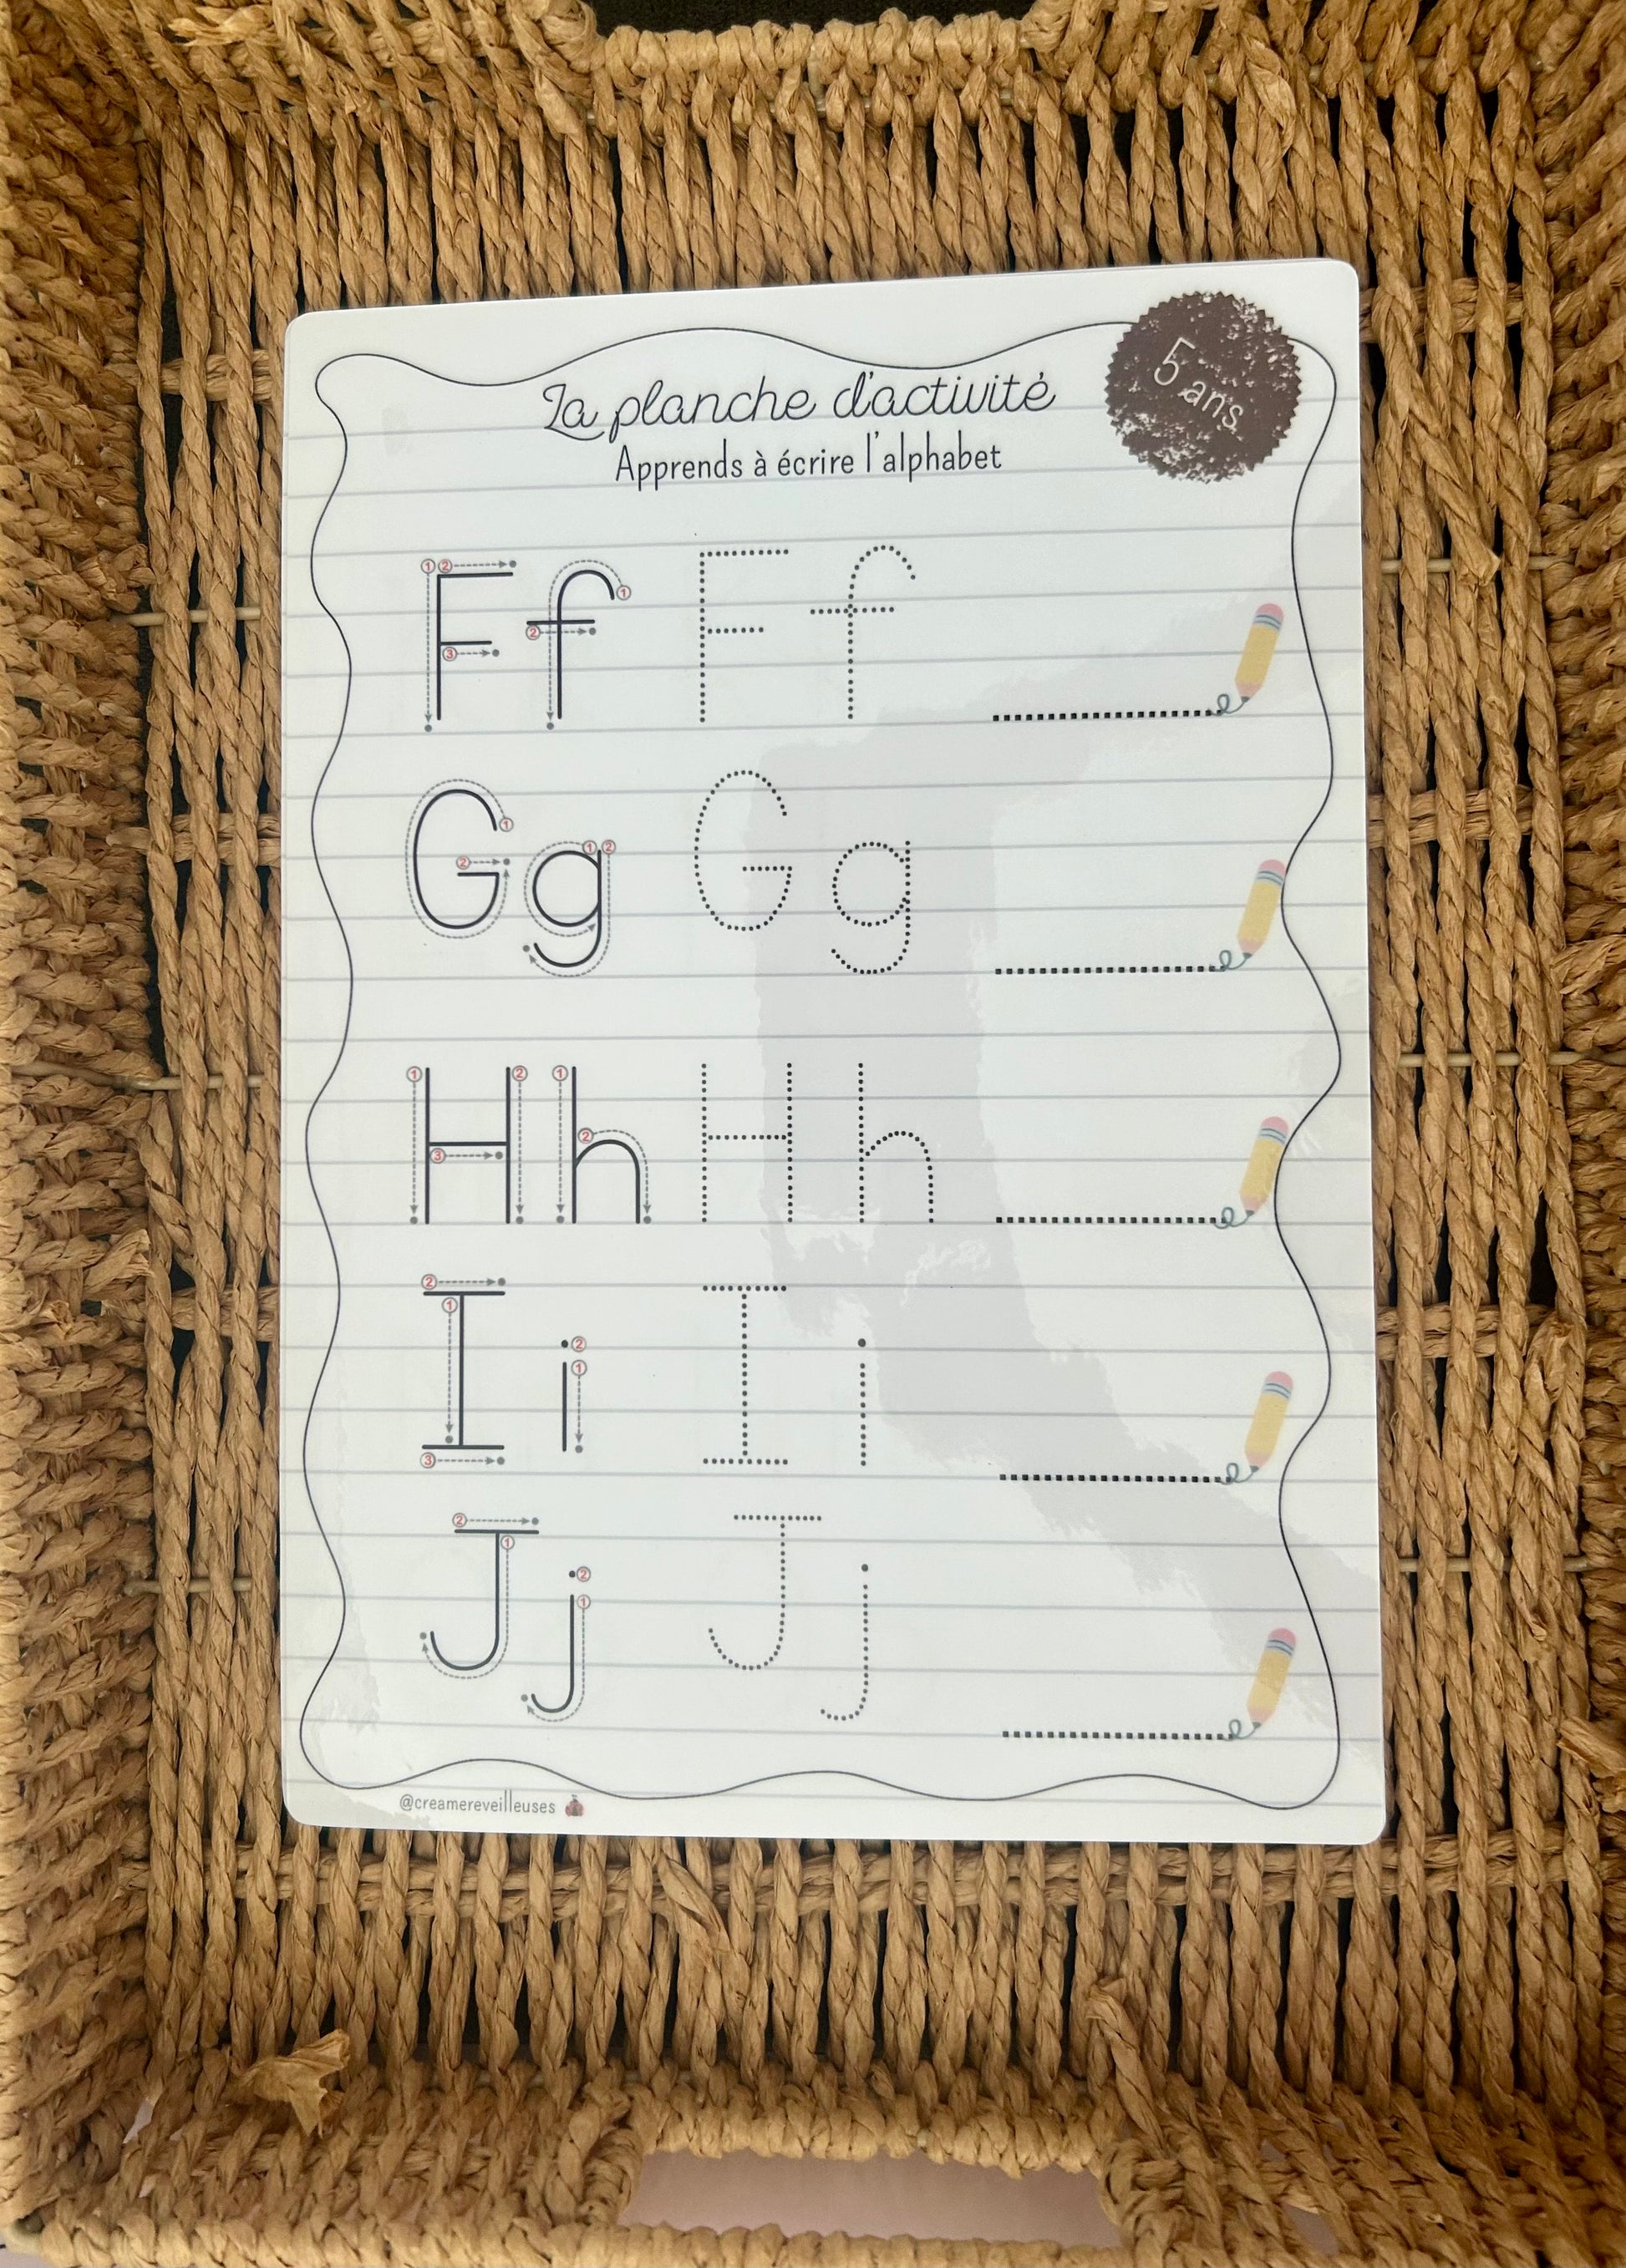 La planche d'activité
5 ans
Apprends à écrire l'alphabet
1 2 3 F 1 2 f F f
1 2 G 1 2 g G g
1 2 3 H 1 2 h H h
2 1 3 I 2 1 i I i
2 1 J 2 1 j J j
@creamereveilleuses